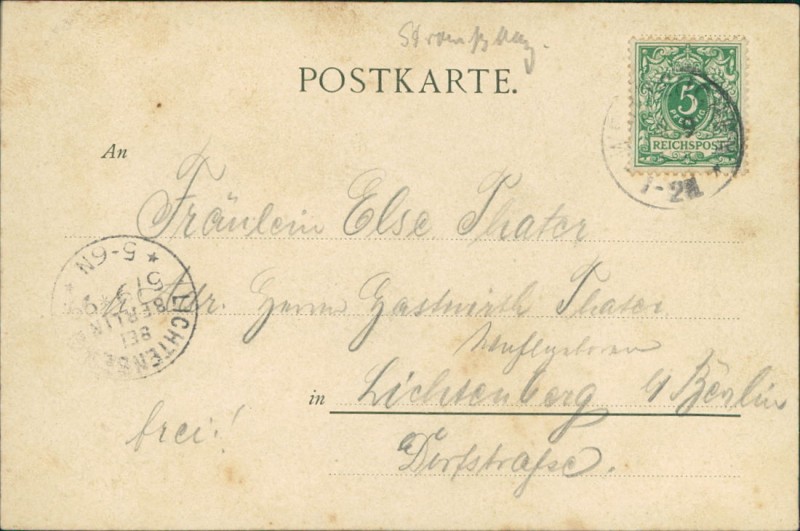 Strausberg.
POSTKARTE.
5
PFENNIG
REICHSPOST
7-8N
An
Fräulein Else Thater
Adr. Herrn Gastwirth Thater
Wohlgeboren
in Lichtenberg b/Berlin
frei!
Dorfstraße.
LICHTENBERG
BEI
BERLIN
* 5-6N *